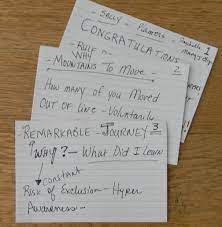 - Salley - Primers
CONGRATULATIONS
- RULE
WHY
- MOUNTAINS TO MOVE - 2
How many of you Moved
OUT OF LINE - Voluntarily
REMARKABLE - JOURNEY 3
"WHY? - What Did I Learn
constant
Risk of Exclusion - Hyper
Awareness -